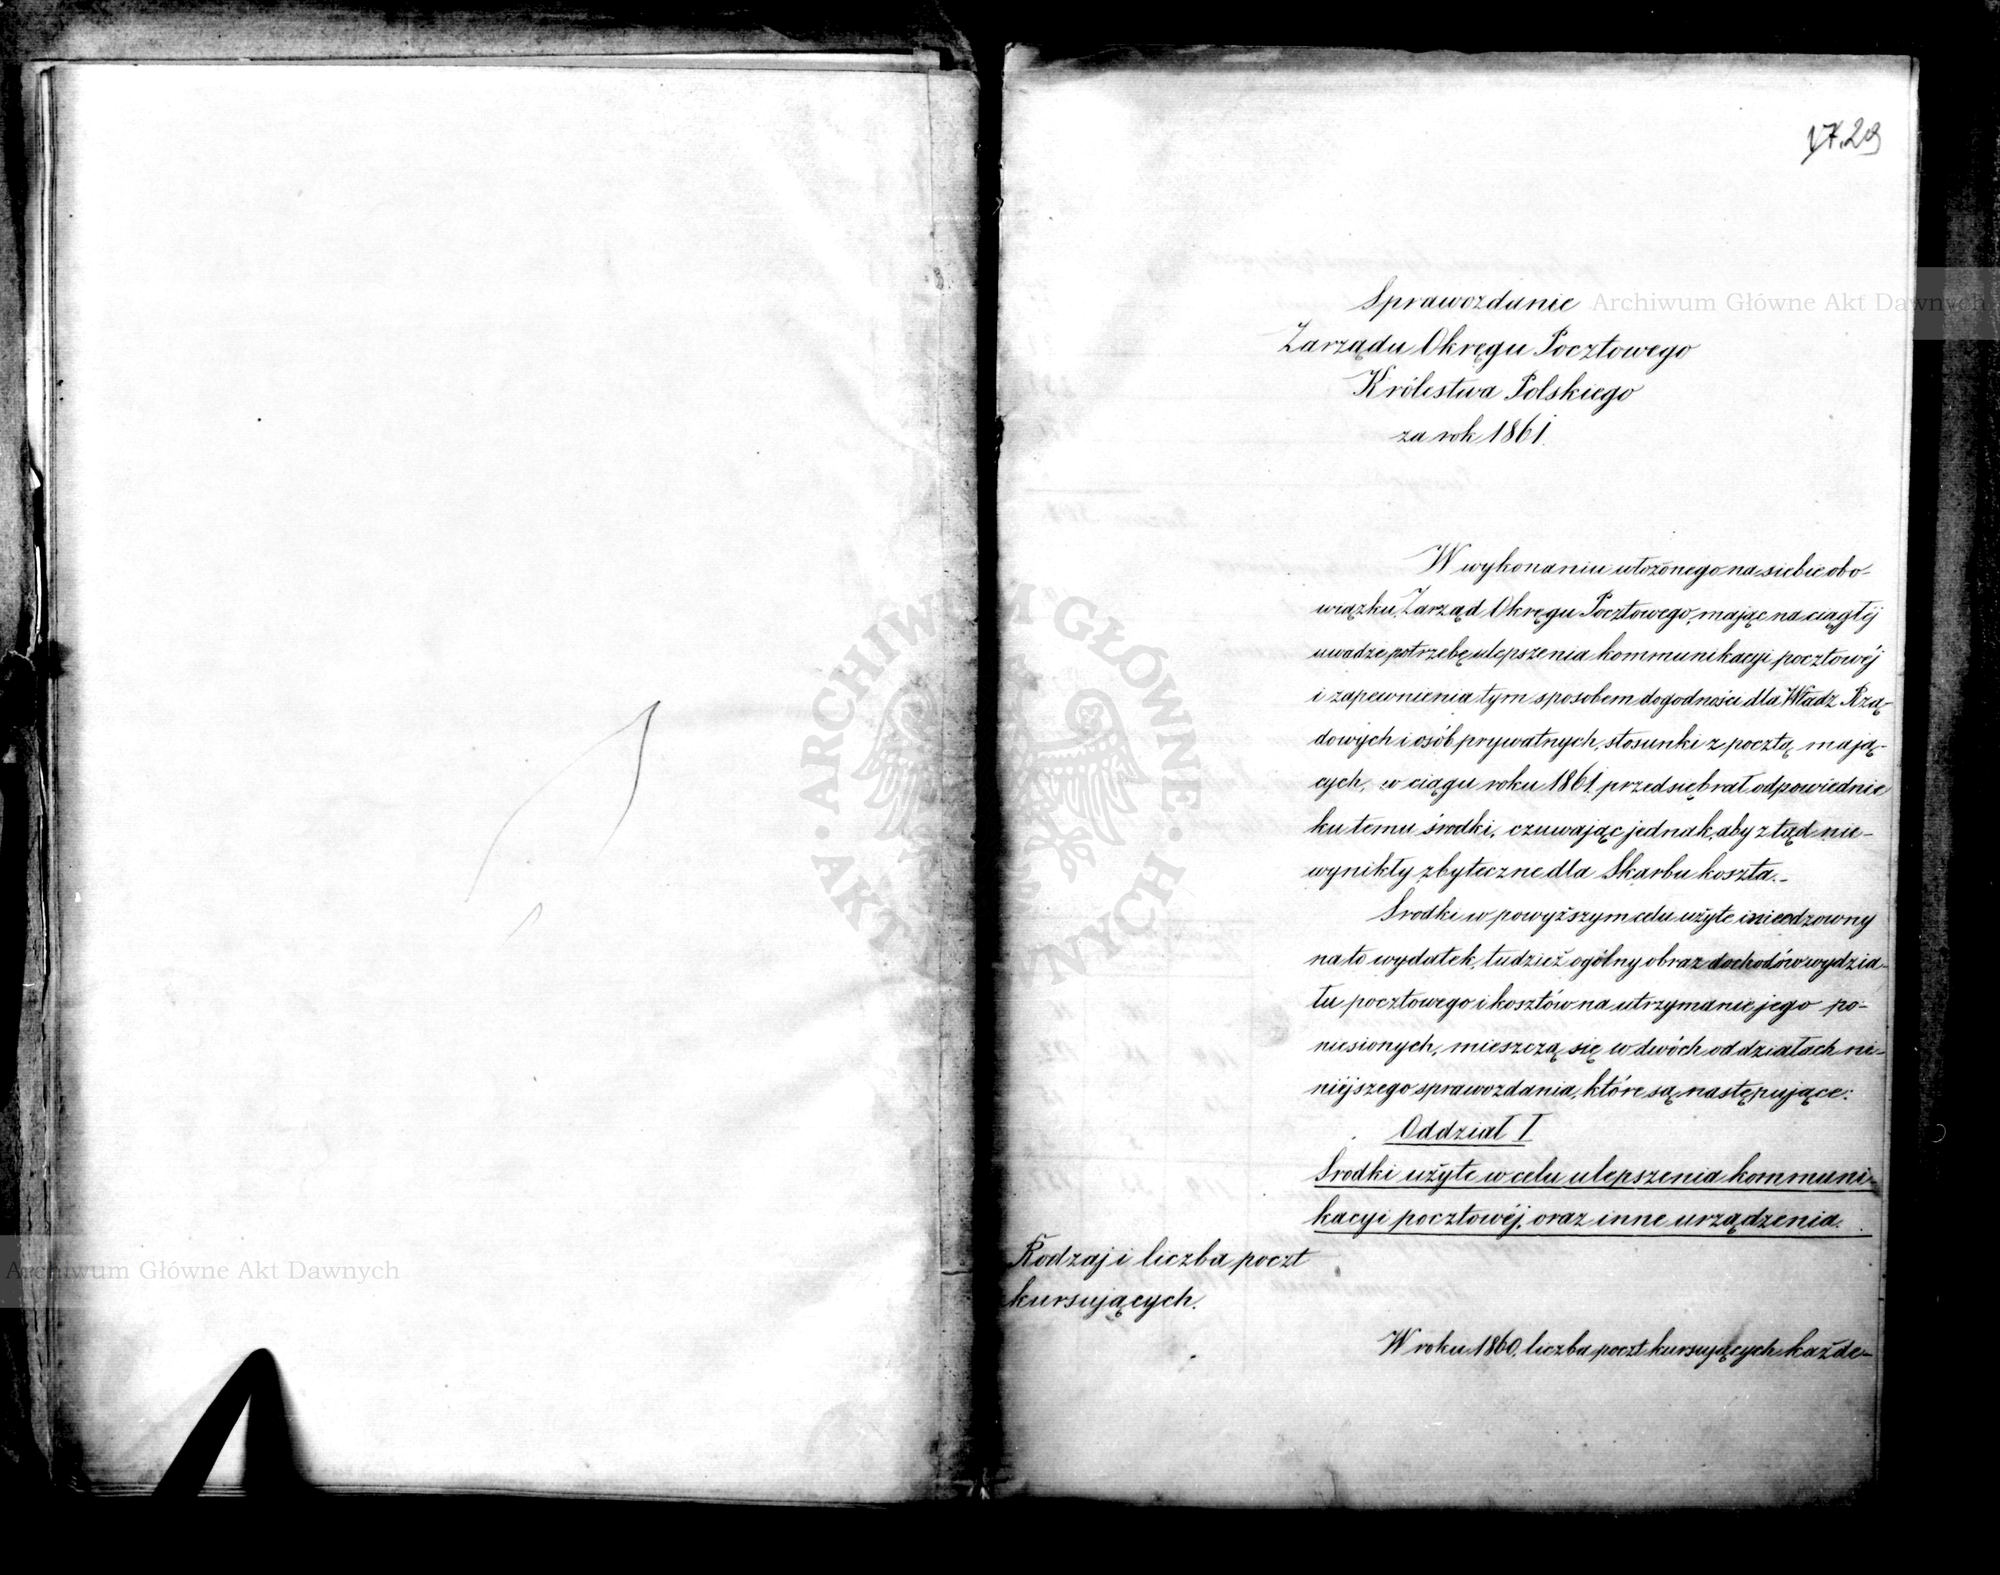 17.29
Sprawozdanie
Zarządu Okręgu Pocztowego
Królestwa Polskiego
za rok 1861.
W wykonaniu włożonego na siebie obo-
wiązku, Zarząd Okręgu Pocztowego, mając na ciągłej
uwadze potrzebę ulepszenia kommunikacyi pocztowéj
i zapewnienia tym sposobem dogodności dla Władz Rzą-
dowych i osób prywatnych, stosunki z pocztą mają-
cych, w ciągu roku 1861. przedsiębrał odpowiednie
ku temu środki, czuwając jednak, aby ztąd nie-
wynikły zbyteczne dla Skarbu koszta.-
Srodki w powyższym celu użyte i nieodzowny
na to wydatek, tudzież ogólny obraz dochodów wydzia-
łu pocztowego i kosztów na utrzymanie jego po-
niesionych, mieszczą się w dwóch oddziałach ni-
niéjszego sprawozdania, które są następujące:
Oddział I
Srodki użyte w celu ulepszenia kommuni-
kacyi pocztowéj, oraz inne urządzenia.
Rodzaj i liczba poczt
kursujących.
W roku 1860, liczba poczt kursujących każde-
Archiwum Główne Akt Dawnych
Archiwum Główne Akt Dawnych
ARCHIWUM GŁÓWNE
AKT DAWNYCH